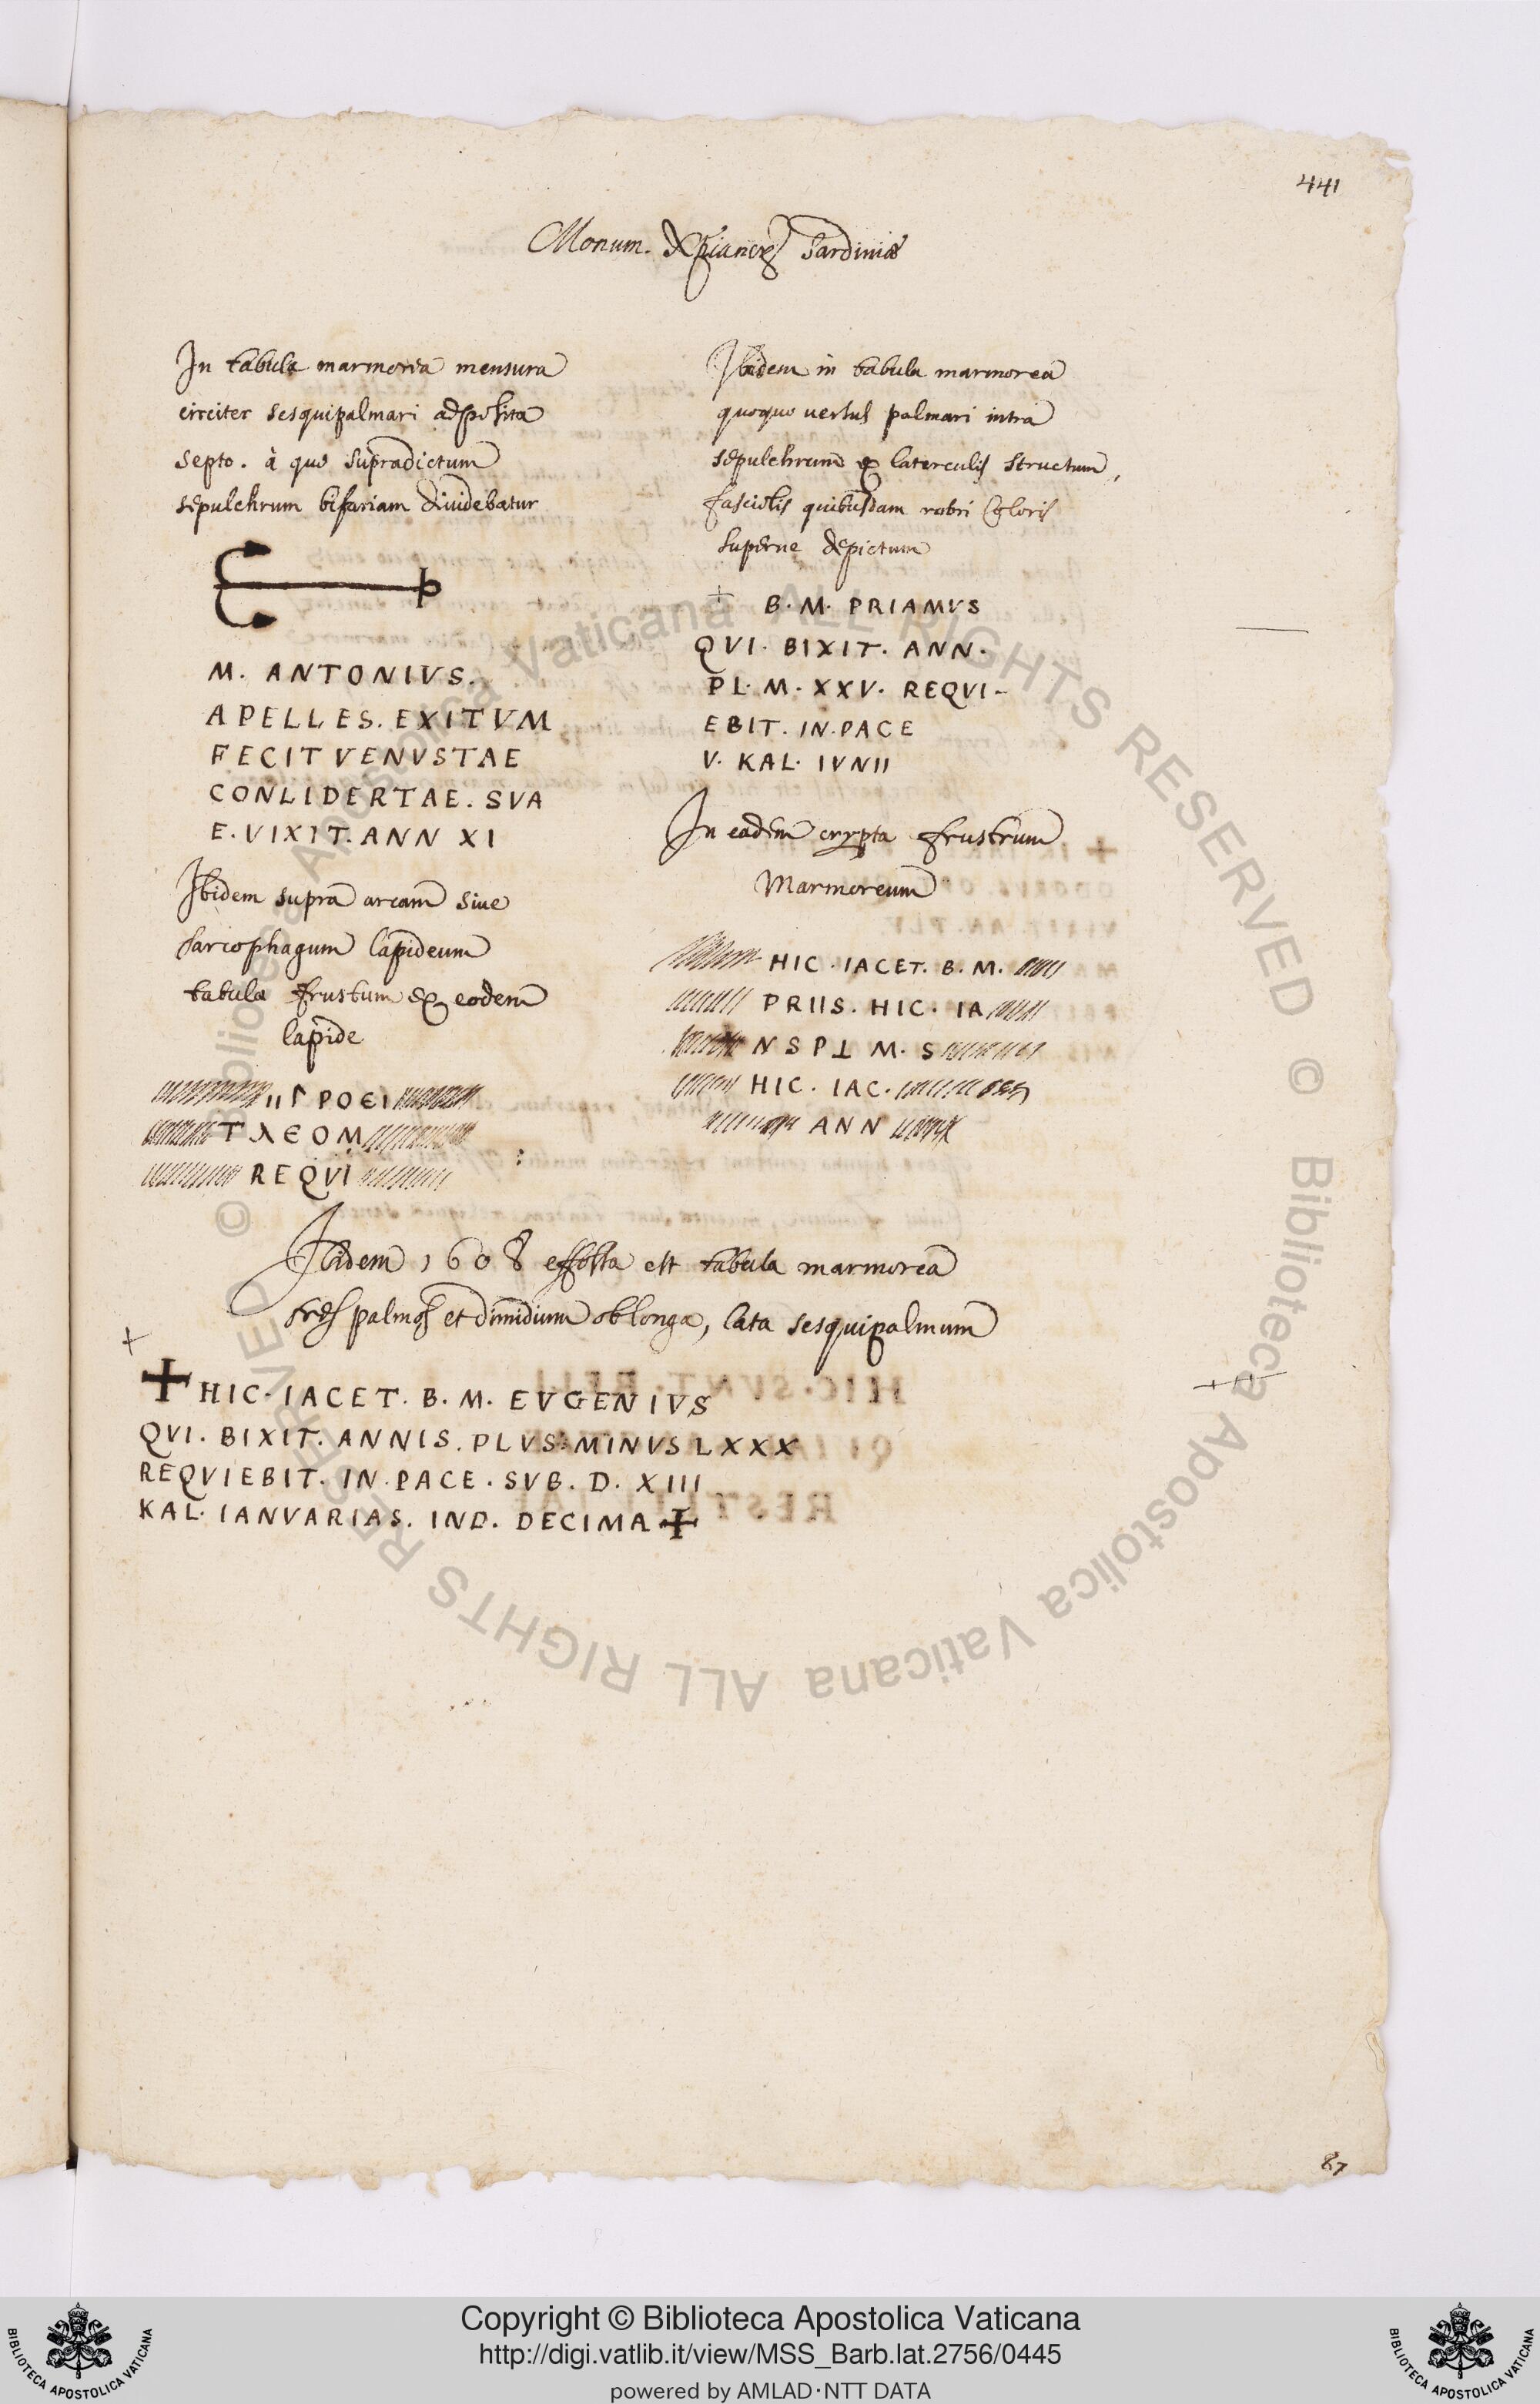 441
Monum. Xpianor Sardiniae
In tabula marmorea mensura
circiter sesquipalmari adposita
septo. à quo supradictum
sepulchrum bifariam dividebatur
M. ANTONIVS.
APELLES. EXITVM
FECIT VENVSTAE
CONLIDERTAE. SVA
E. VIXIT. ANN XI
Ibidem supra arcam sive
sarcophagum lapideum
tabulae frustum ex eodem
lapide
ΙΙΓ ΡΟЄΙ
ΤλЄΟΜ
REQVI
Ibidem in tabula marmorea
quoquo versus palmari intra
sepulchrum ex laterculis structum,
fasciolis quibusdam rubri coloris
superne depictum
+ B. M. PRIAMVS
QVI. BIXIT. ANN.
PL. M. XXV. REQVI-
EBIT. IN. PACE
V. KAL. IVNII
In eadem crypta frustrum
Marmoreum
HIC. IACET. B. M.
PRIIS. HIC. IA
NSP⊥ M. S
HIC. IAC.
ANN
Ibidem 1608 effossa est tabula marmorea
tres palmos et dimidium oblonga, lata sesquipalmum
+ HIC. IACET. B. M. EVGENIVS
QVI. BIXIT. ANNIS. PLVS. MINVS LXXX
REQVIEBIT. IN. PACE. SVB. D. XIII
KAL. IANVARIAS. IND. DECIMA +
87
© Biblioteca Apostolica Vaticana ALL RIGHTS RESERVED © Biblioteca Apostolica Vaticana ALL RIGHTS RESERVED
Copyright © Biblioteca Apostolica Vaticana
http://digi.vatlib.it/view/MSS_Barb.lat.2756/0445
powered by AMLAD·NTT DATA
BIBLIOTECA APOSTOLICA VATICANA
BIBLIOTECA APOSTOLICA VATICANA